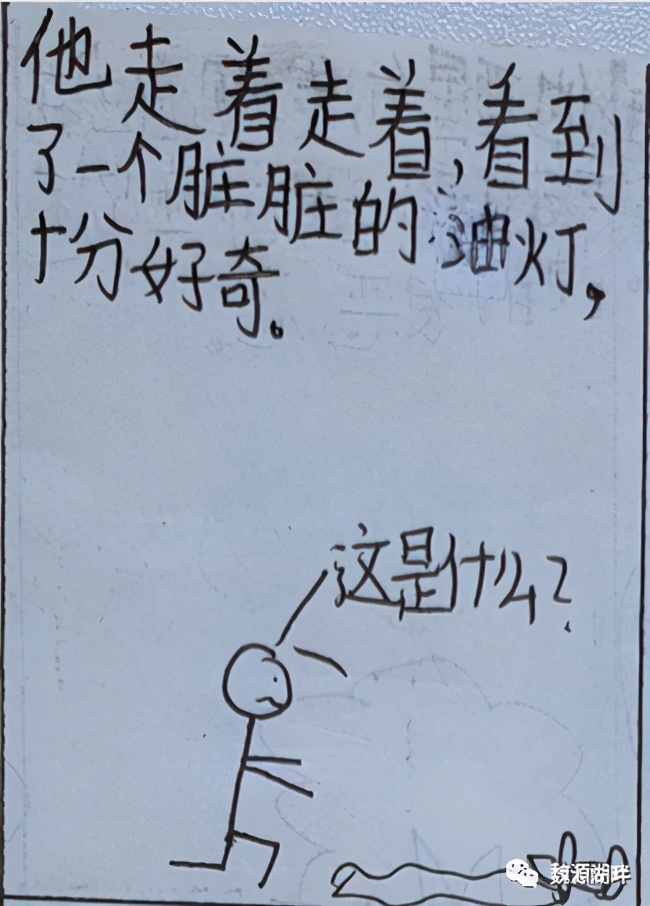 他走着走着,看到
了一个脏脏的油灯,
十分好奇。
这是什么?
魏源湖畔